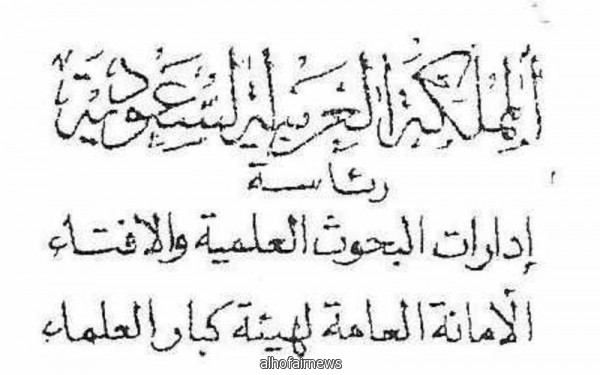 المملكة العربية السعودية
رئاسة
إدارات البحوث العلمية والافتاء
الأمانة العامة لهيئة كبار العلماء
alhofairnews